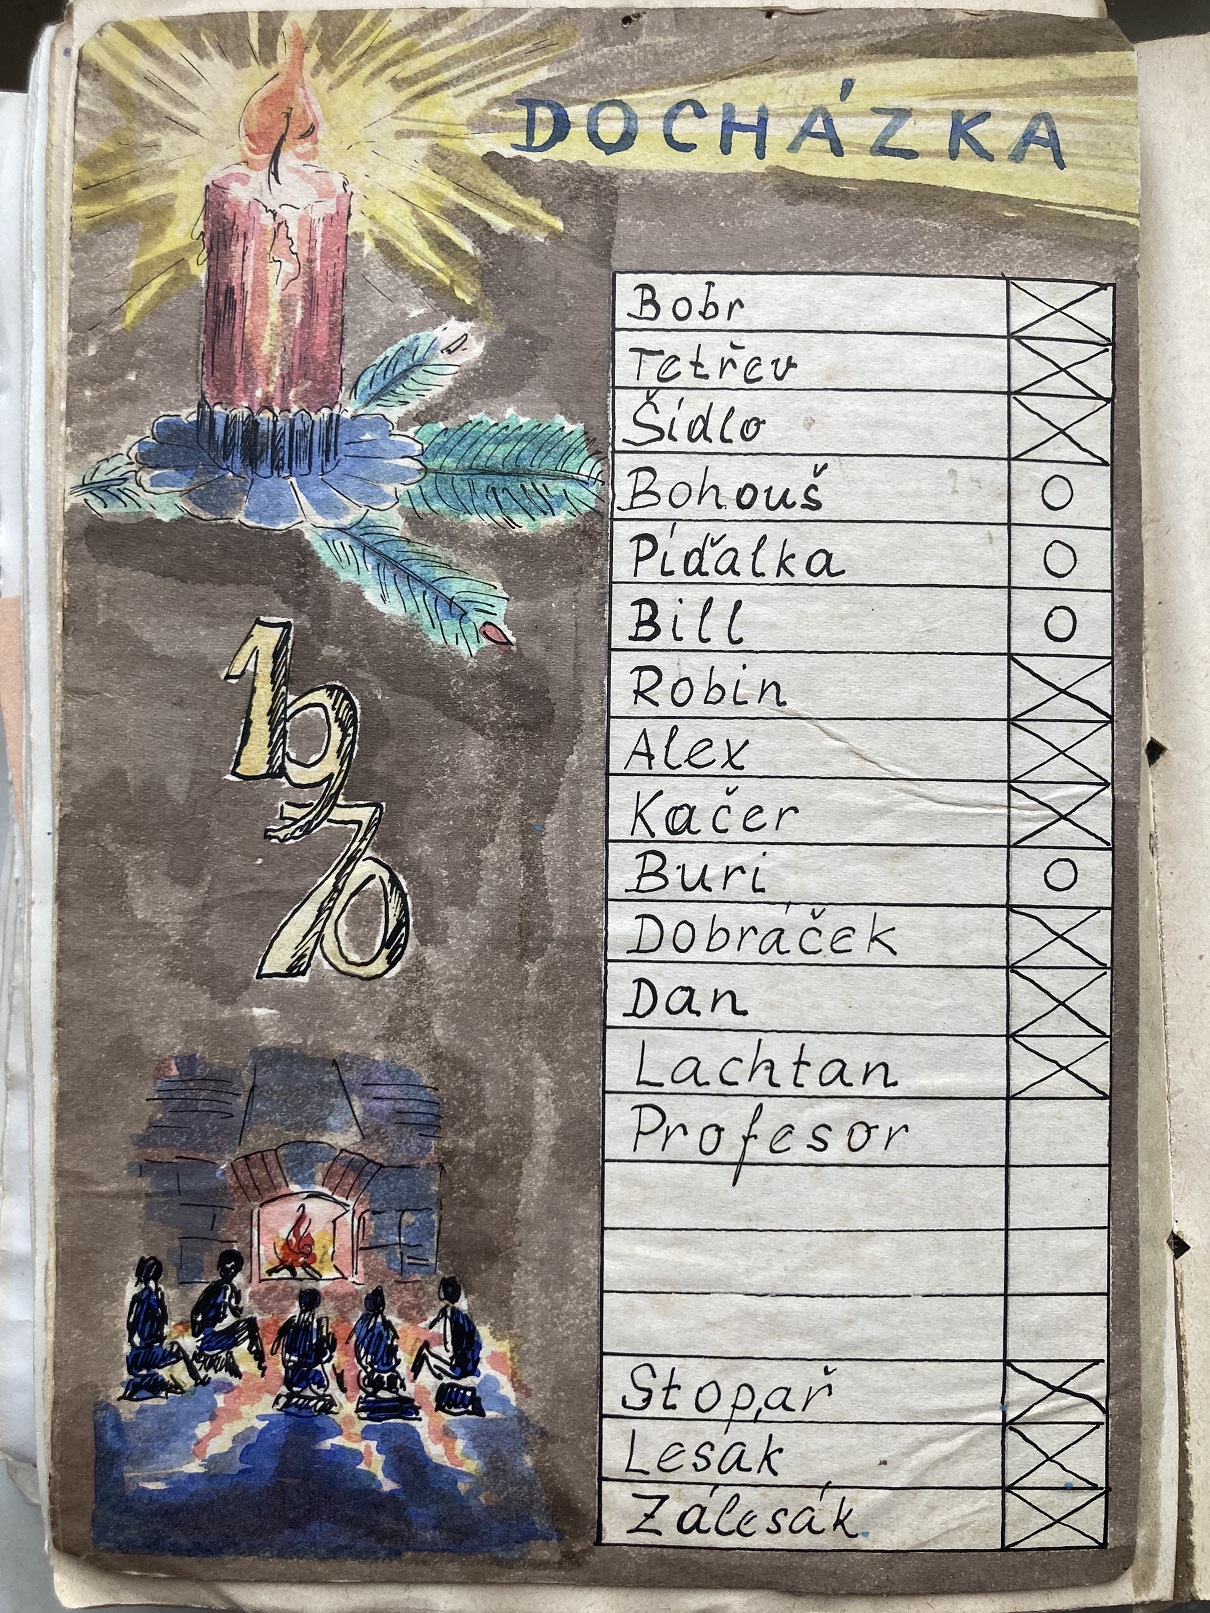 DOCHÁZKA
Bobr
Tetřev
Šídlo
Bohouš
Píďalka
Bill
Robin
Alex
Kačer
Buri
Dobráček
Dan
Lachtan
Profesor
Stopař
Lesák
Zálesák
1970